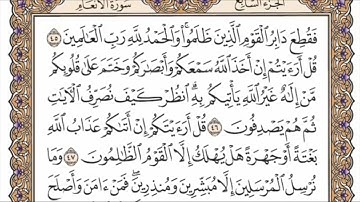 الجزء السابع سورة الأنعام
فَقُطِعَ دَابِرُ الْقَوْمِ الَّذِينَ ظَلَمُوا۟ ۚ وَالْحَمْدُ لِلَّهِ رَبِّ الْعَالَمِينَ ٤٥
قُلْ أَرَءَيْتُمْ إِنْ أَخَذَ اللَّهُ سَمْعَكُمْ وَأَبْصَارَكُمْ وَخَتَمَ عَلَىٰ قُلُوبِكُم
مَّنْ إِلَٰهٌ غَيْرُ اللَّهِ يَأْتِيكُم بِهِ ۗ انظُرْ كَيْفَ نُصَرِّفُ الْآيَاتِ
ثُمَّ هُمْ يَصْدِفُونَ ٤٦ قُلْ أَرَءَيْتَكُمْ إِنْ أَتَاكُمْ عَذَابُ اللَّهِ
بَغْتَةً أَوْ جَهْرَةً هَلْ يُهْلَكُ إِلَّا الْقَوْمُ الظَّالِمُونَ ٤٧ وَمَا
نُرْسِلُ الْمُرْسَلِينَ إِلَّا مُبَشِّرِينَ وَمُنذِرِينَ ۖ فَمَنْ ءَامَنَ وَأَصْلَحَ